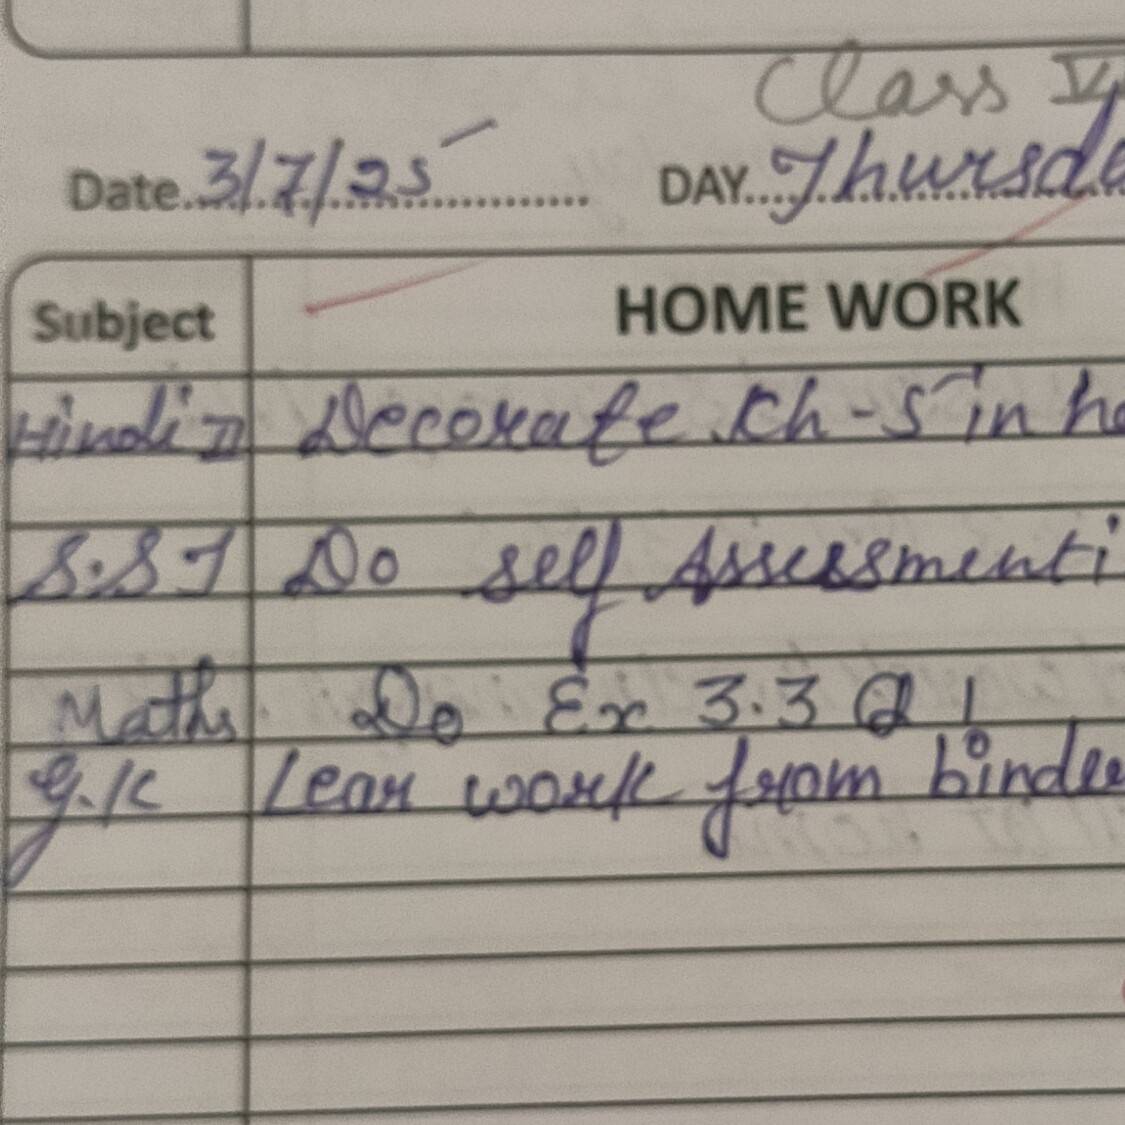 Class V
Date 3/7/25 DAY Thursda
Subject HOME WORK
Hindi II Decorate Ch-5 in
S.ST Do self Assessment i
Maths Do Ex 3.3 Q 1
G.K Lean work from binde